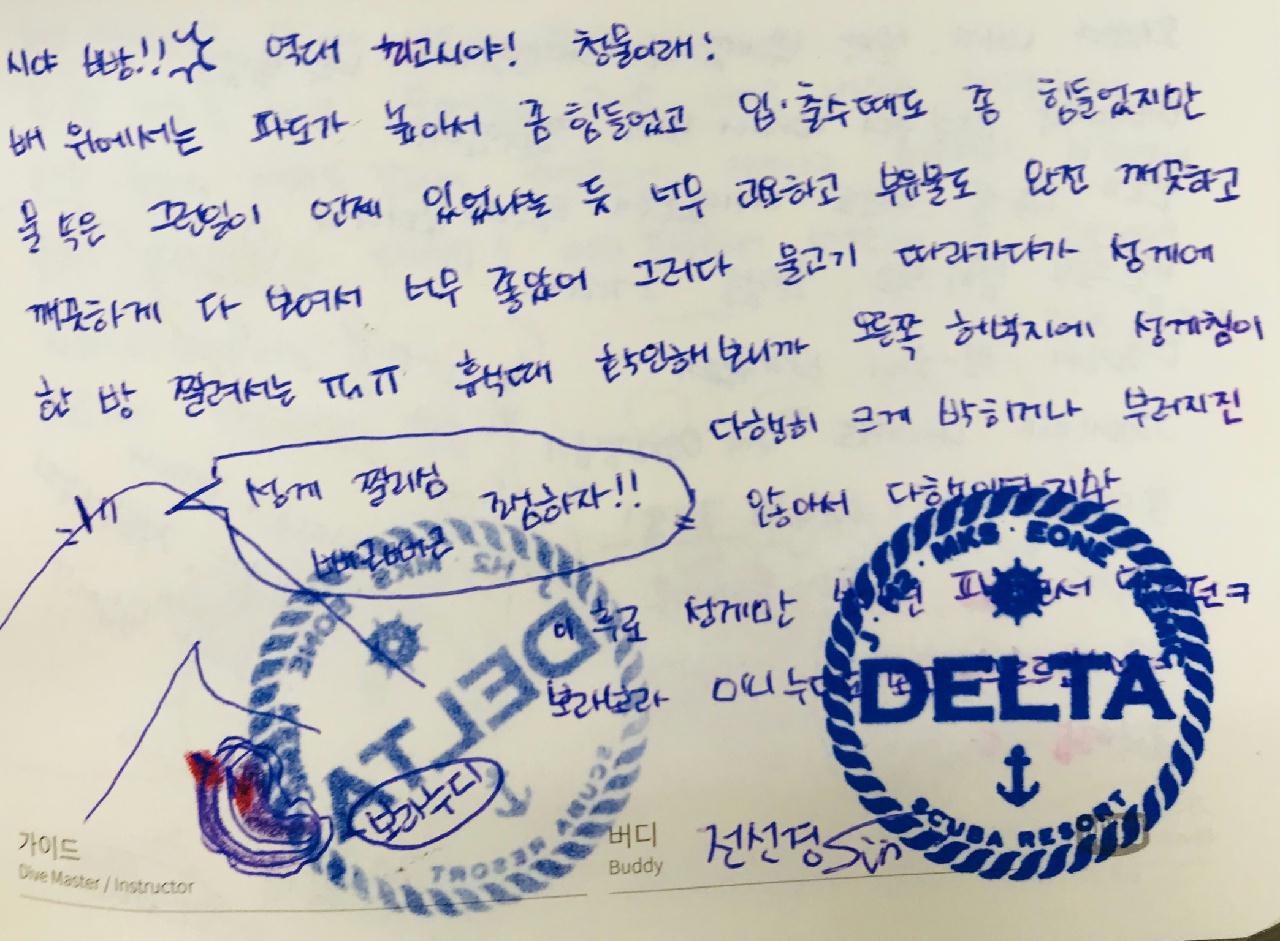 시야 빵!! 역대 최고시야! 청물이래!
배 위에서는 파도가 높아서 좀 힘들었고 입·출수때도 좀 힘들었지만
물 속은 그런일이 언제 있었냐는 듯 너무 고요하고 부유물도 완전 깨끗하고
깨끗하게 다 보여서 너무 좋았어 그러다 물고기 따라가다가 성게에
한 방 찔려서는 ㅠㅠ 휴식때 확인해보니까 오른쪽 허벅지에 성게침이
다행히 크게 박히거나 부러지진
않아서
성게 찔리심
조심하자!!
빠근빠근
이 후로 성게만
보라보라
보라누디
가이드
Dive Master / Instructor
버디
Buddy
전선경
MKS · EONE
DELTA
SCUBA RESORT